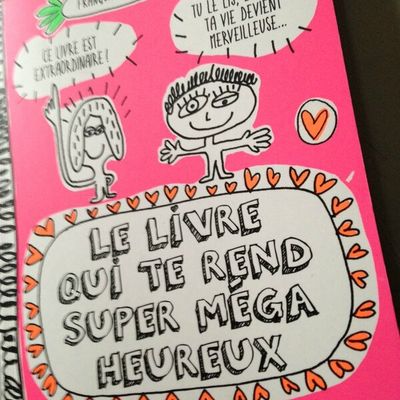 TU LE LIS,
TA VIE DEVIENT
MERVEILLEUSE...
CE LIVRE EST
EXTRAORDINAIRE !
LE LIVRE
QUI TE REND
SUPER MÉGA
HEUREUX